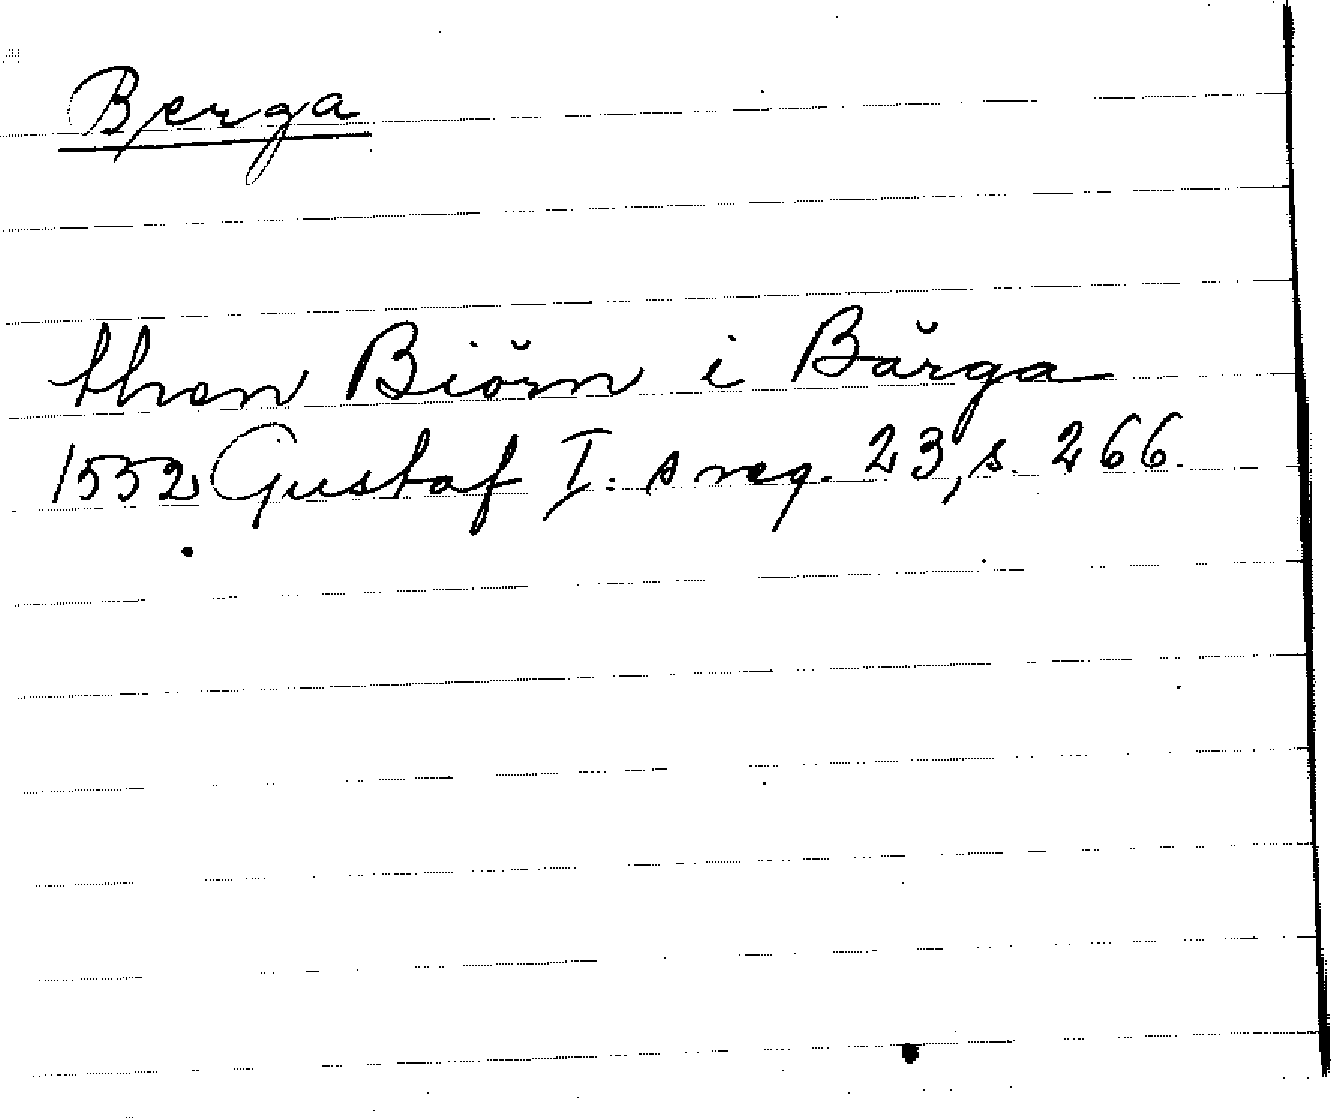 Berga
then Biörn i Bärga
1552 Gustaf I:s reg. 23, s. 266.